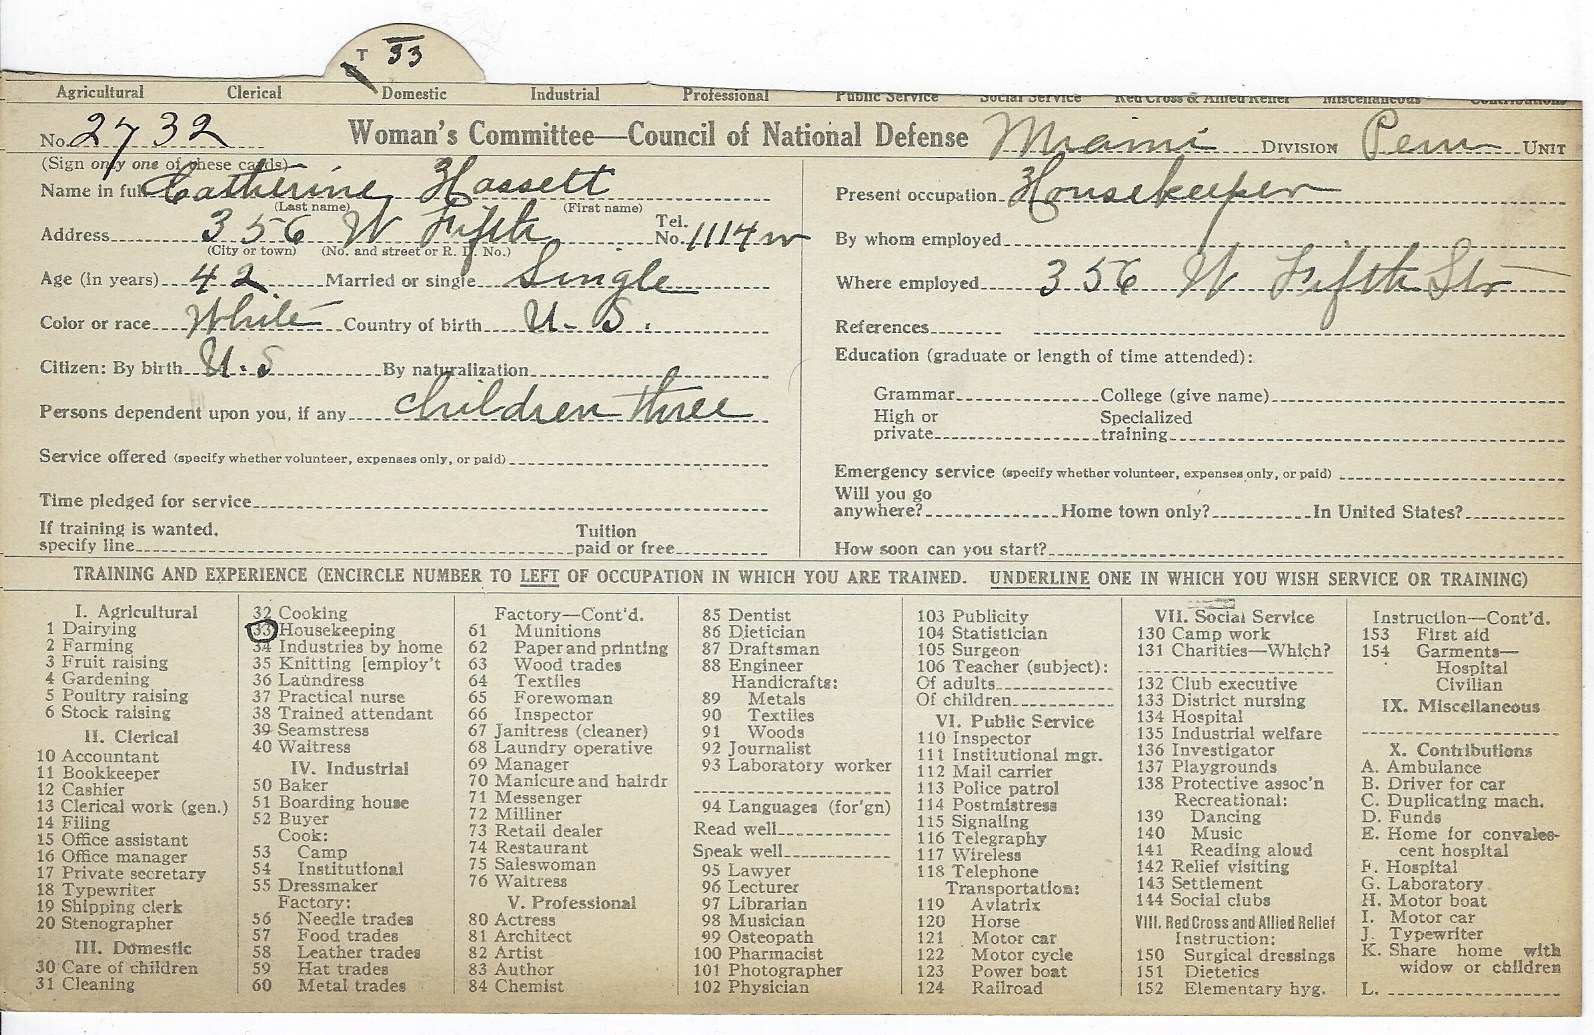 T 33
Agricultural Clerical Domestic Industrial Professional Public Service Social Service Red Cross & Allied Relief Miscellaneous Contributions
No. 2732 Woman's Committee—Council of National Defense Miami DIVISION Penn UNIT
(Sign only one of these cards)
Name in full Catherine Hassett
(Last name) (First name)
Address 356 W Fifth Tel. No. 1114 w
(City or town) (No. and street or R. D. No.)
Age (in years) 42 Married or single Single
Color or race White Country of birth U. S.
Citizen: By birth U. S By naturalization
Persons dependent upon you, if any children three
Service offered (specify whether volunteer, expenses only, or paid)
Time pledged for service
If training is wanted, specify line Tuition paid or free
Present occupation Housekeeper
By whom employed
Where employed 356 W Fifth Str
References
Education (graduate or length of time attended):
Grammar College (give name)
High or private Specialized training
Emergency service (specify whether volunteer, expenses only, or paid)
Will you go anywhere? Home town only? In United States?
How soon can you start?
TRAINING AND EXPERIENCE (ENCIRCLE NUMBER TO LEFT OF OCCUPATION IN WHICH YOU ARE TRAINED. UNDERLINE ONE IN WHICH YOU WISH SERVICE OR TRAINING)
I. Agricultural
1 Dairying
2 Farming
3 Fruit raising
4 Gardening
5 Poultry raising
6 Stock raising
II. Clerical
10 Accountant
11 Bookkeeper
12 Cashier
13 Clerical work (gen.)
14 Filing
15 Office assistant
16 Office manager
17 Private secretary
18 Typewriter
19 Shipping clerk
20 Stenographer
III. Domestic
30 Care of children
31 Cleaning
32 Cooking
33 Housekeeping
34 Industries by home
35 Knitting [employ't
36 Laundress
37 Practical nurse
38 Trained attendant
39 Seamstress
40 Waitress
IV. Industrial
50 Baker
51 Boarding house
52 Buyer
Cook:
53 Camp
54 Institutional
55 Dressmaker
Factory:
56 Needle trades
57 Food trades
58 Leather trades
59 Hat trades
60 Metal trades
Factory—Cont'd.
61 Munitions
62 Paper and printing
63 Wood trades
64 Textiles
65 Forewoman
66 Inspector
67 Janitress (cleaner)
68 Laundry operative
69 Manager
70 Manicure and hairdr
71 Messenger
72 Milliner
73 Retail dealer
74 Restaurant
75 Saleswoman
76 Waitress
V. Professional
80 Actress
81 Architect
82 Artist
83 Author
84 Chemist
85 Dentist
86 Dietician
87 Draftsman
88 Engineer
Handicrafts:
89 Metals
90 Textiles
91 Woods
92 Journalist
93 Laboratory worker
94 Languages (for'gn)
Read well
Speak well
95 Lawyer
96 Lecturer
97 Librarian
98 Musician
99 Osteopath
100 Pharmacist
101 Photographer
102 Physician
103 Publicity
104 Statistician
105 Surgeon
106 Teacher (subject):
Of adults
Of children
VI. Public Service
110 Inspector
111 Institutional mgr.
112 Mail carrier
113 Police patrol
114 Postmistress
115 Signaling
116 Telegraphy
117 Wireless
118 Telephone
Transportation:
119 Aviatrix
120 Horse
121 Motor car
122 Motor cycle
123 Power boat
124 Railroad
VII. Social Service
130 Camp work
131 Charities—Which?
132 Club executive
133 District nursing
134 Hospital
135 Industrial welfare
136 Investigator
137 Playgrounds
138 Protective assoc'n
Recreational:
139 Dancing
140 Music
141 Reading aloud
142 Relief visiting
143 Settlement
144 Social clubs
VIII. Red Cross and Allied Relief
Instruction:
150 Surgical dressings
151 Dietetics
152 Elementary hyg.
Instruction—Cont'd.
153 First aid
154 Garments—
Hospital
Civilian
IX. Miscellaneous
X. Contributions
A. Ambulance
B. Driver for car
C. Duplicating mach.
D. Funds
E. Home for convales-
cent hospital
F. Hospital
G. Laboratory
H. Motor boat
I. Motor car
J. Typewriter
K. Share home with
widow or children
L.